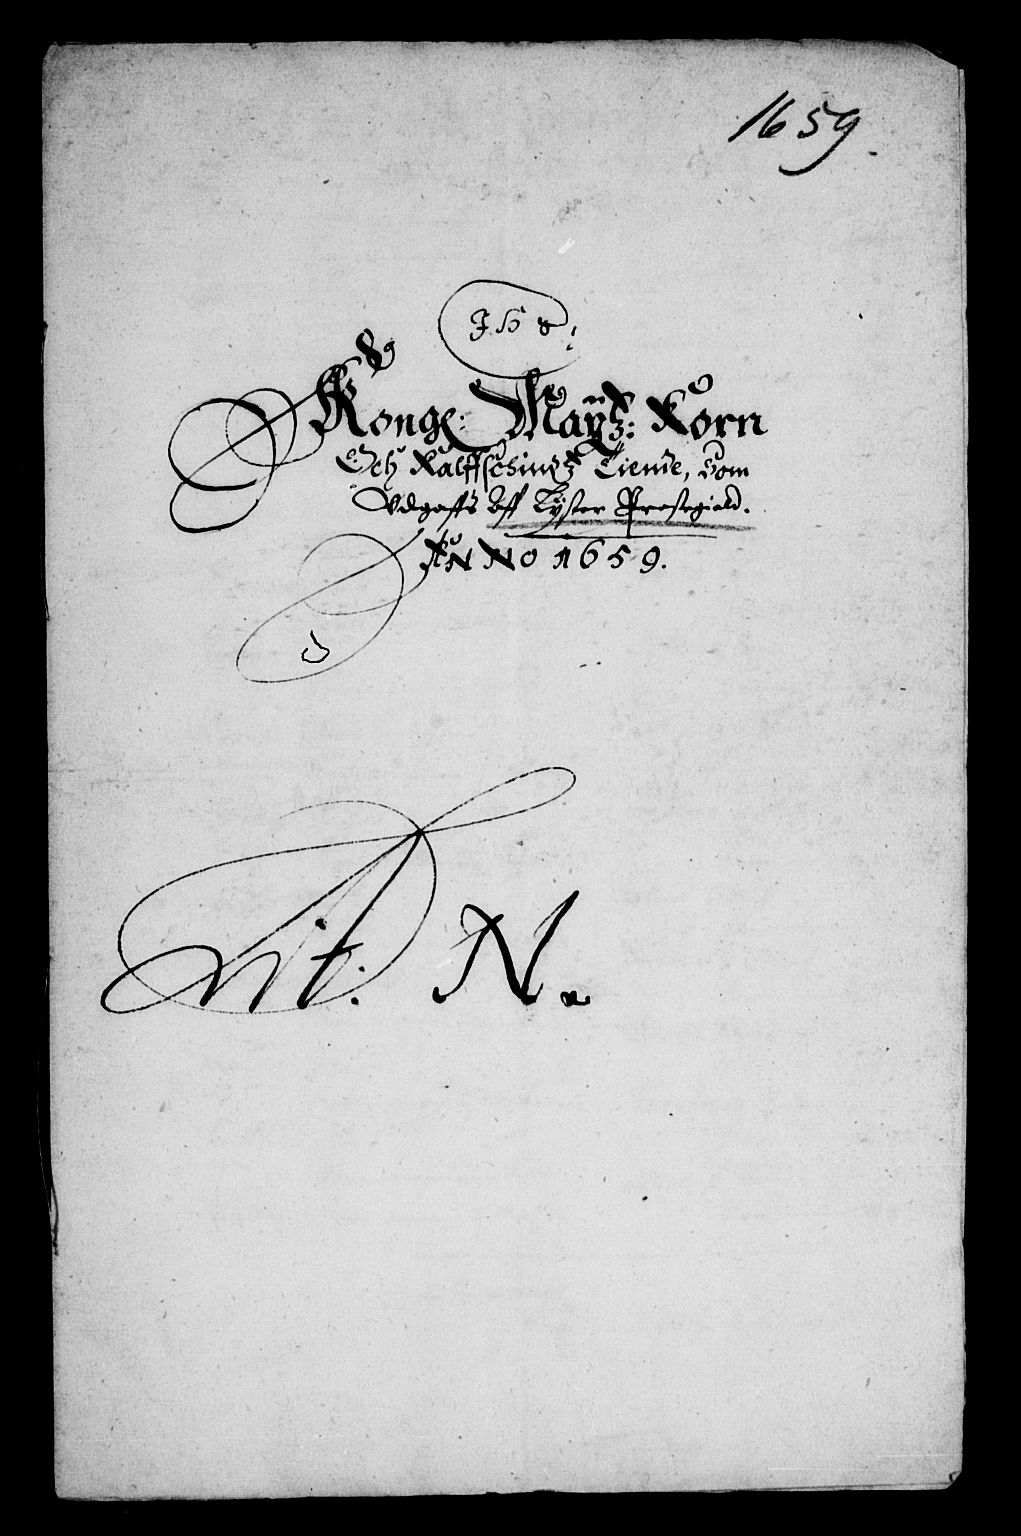 1659.
Konge: Maÿtz: Korn
Och Kalffschindz Tiende, som
Vdgaffs Aff Lÿster Prestegield.
ANNO 1659.
Lit: N.